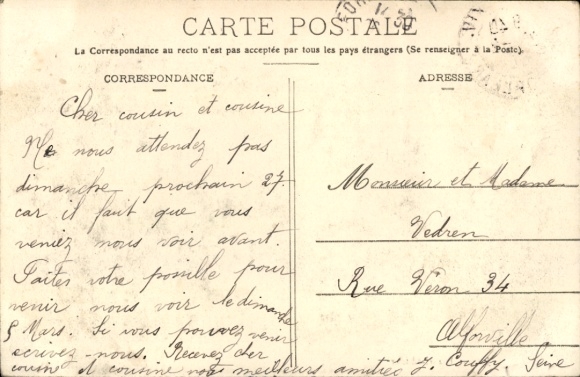 CARTE POSTALE
La Correspondance au recto n'est pas acceptée par tous les pays étrangers (Se renseigner à la Poste).
CORRESPONDANCE
Cher cousin et cousine
Ne nous attendez pas
dimanche prochain 27.
car il faut que vous
veniez nous voir avant.
Faites votre possible pour
venir nous voir le dimanche
5 Mars. Si vous pouvez venir
ecrivez-nous. Recevez cher
cousin et cousine nos meilleurs amitiés J. Couffy
ADRESSE
Monsieur et Madame
Vedren
Rue Véron 34
Alforville
Seine